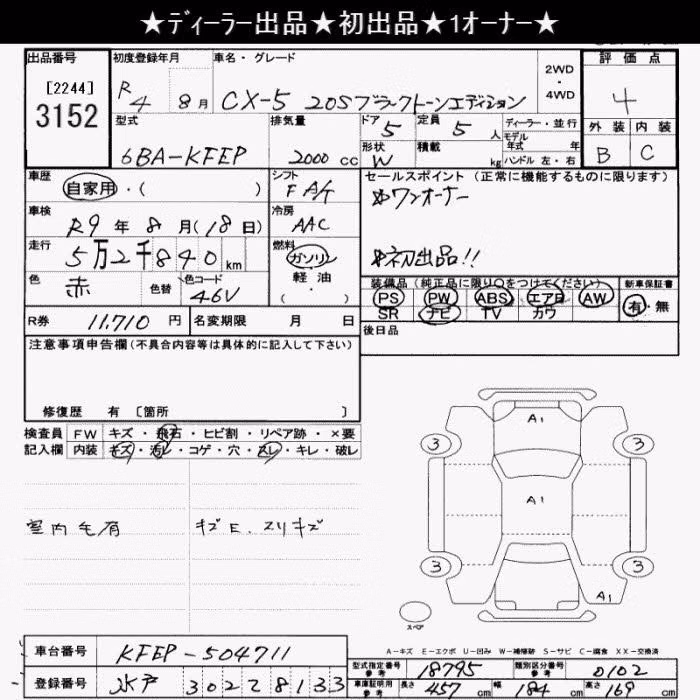 ★ディーラー出品★初出品★1オーナー★
出品番号 初度登録年月 車名・グレード 2WD・4WD 評価点
[2244] 3152 R4 8月 CX-5 20Sブラックトーンエディション 4
型式 排気量 ドア 5 定員 5人 ディーラー・並行 外装 内装
モデル年式 年
6BA-KFEP 2000cc 形状 W 積載 kg ハンドル 左・右 B C
車歴 シフト セールスポイント(正常に機能するものに限ります)
自家用・( ) F A/T ※ワンオーナー
車検 冷房
R9年8月(18日) AAC
走行 燃料 ※初出品!!
5万2千840km ガソリン
軽油・( )
色 色替 色コード 装備品(純正品に限り○をつけてください) 新車保証書
赤 46V PS PW ABS エアB AW 有・無
SR ナビ TV カワ
R券 11,710円 名変期限 月 日 後日品
注意事項申告欄(不具合内容等は具体的に記入して下さい)
修復歴 有 [箇所 ]
検査員 FW キズ・飛石・ヒビ割・リペア跡・×要
記入欄 内装 キズ・汚レ・コゲ・穴・スレ・キレ・破レ
室内毛屑 キズE、スリキズ
A1
3 3
A1
3 3
A1
スペア
A-キズ E-エクボ U-凹み W-補修跡 S-サビ C-腐食 XX-交換済
車台番号 KFEP-504711 型式指定番号 参考 18795 類別区分番号 参考 0102
登録番号 水戸 302 て 8133 車庫証明用 参考 長さ 457cm 幅 184cm 高さ 169cm